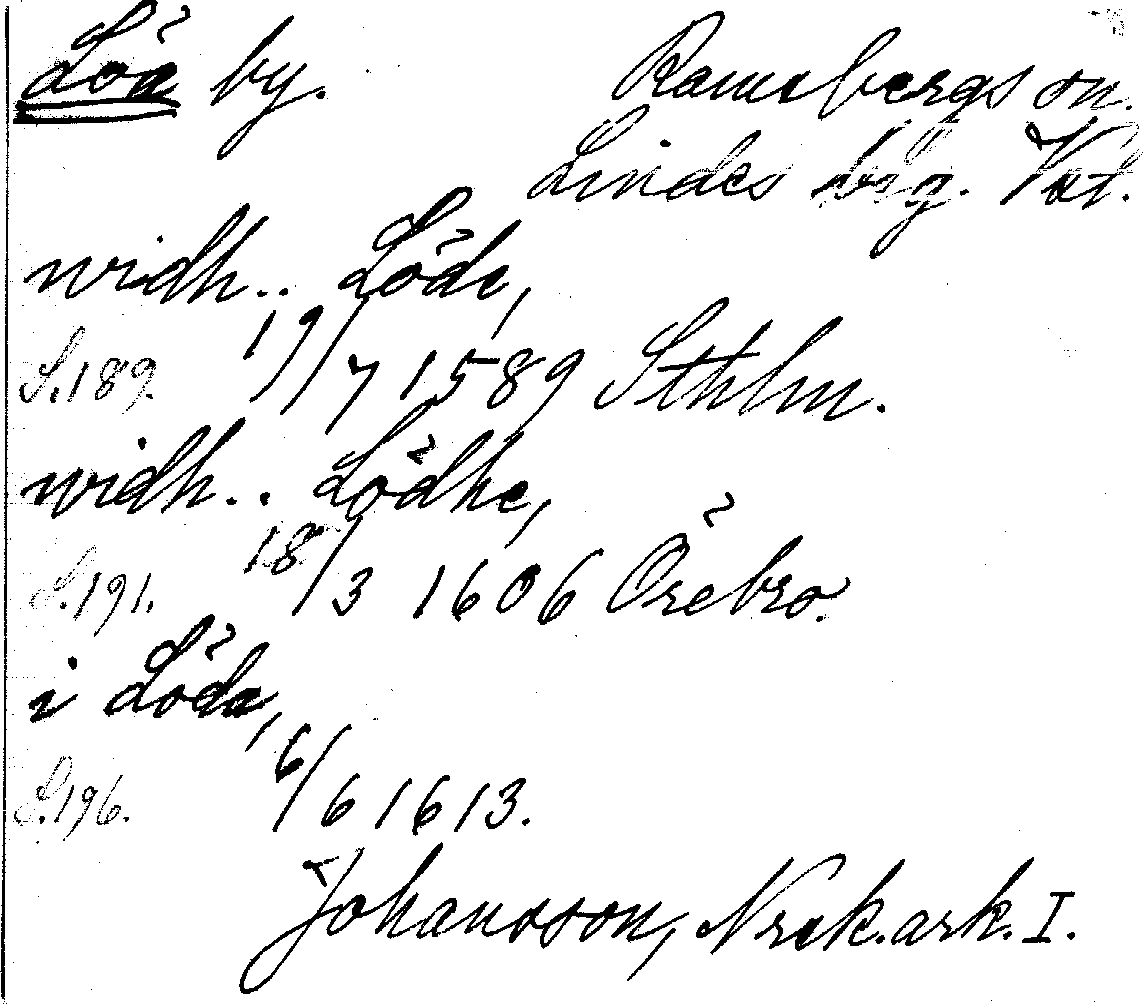 Löa by. Ramsbergs sn.
Lindes brg. Vstm.
widh.. Löde,
S. 189. 19/7 1589 Sthlm.
widh.. Lödhe,
S. 191. 18/3 1606 Örebro.
i Löda,
S. 196. 6/6 1613.
Johansson, Nrck. ark. I.